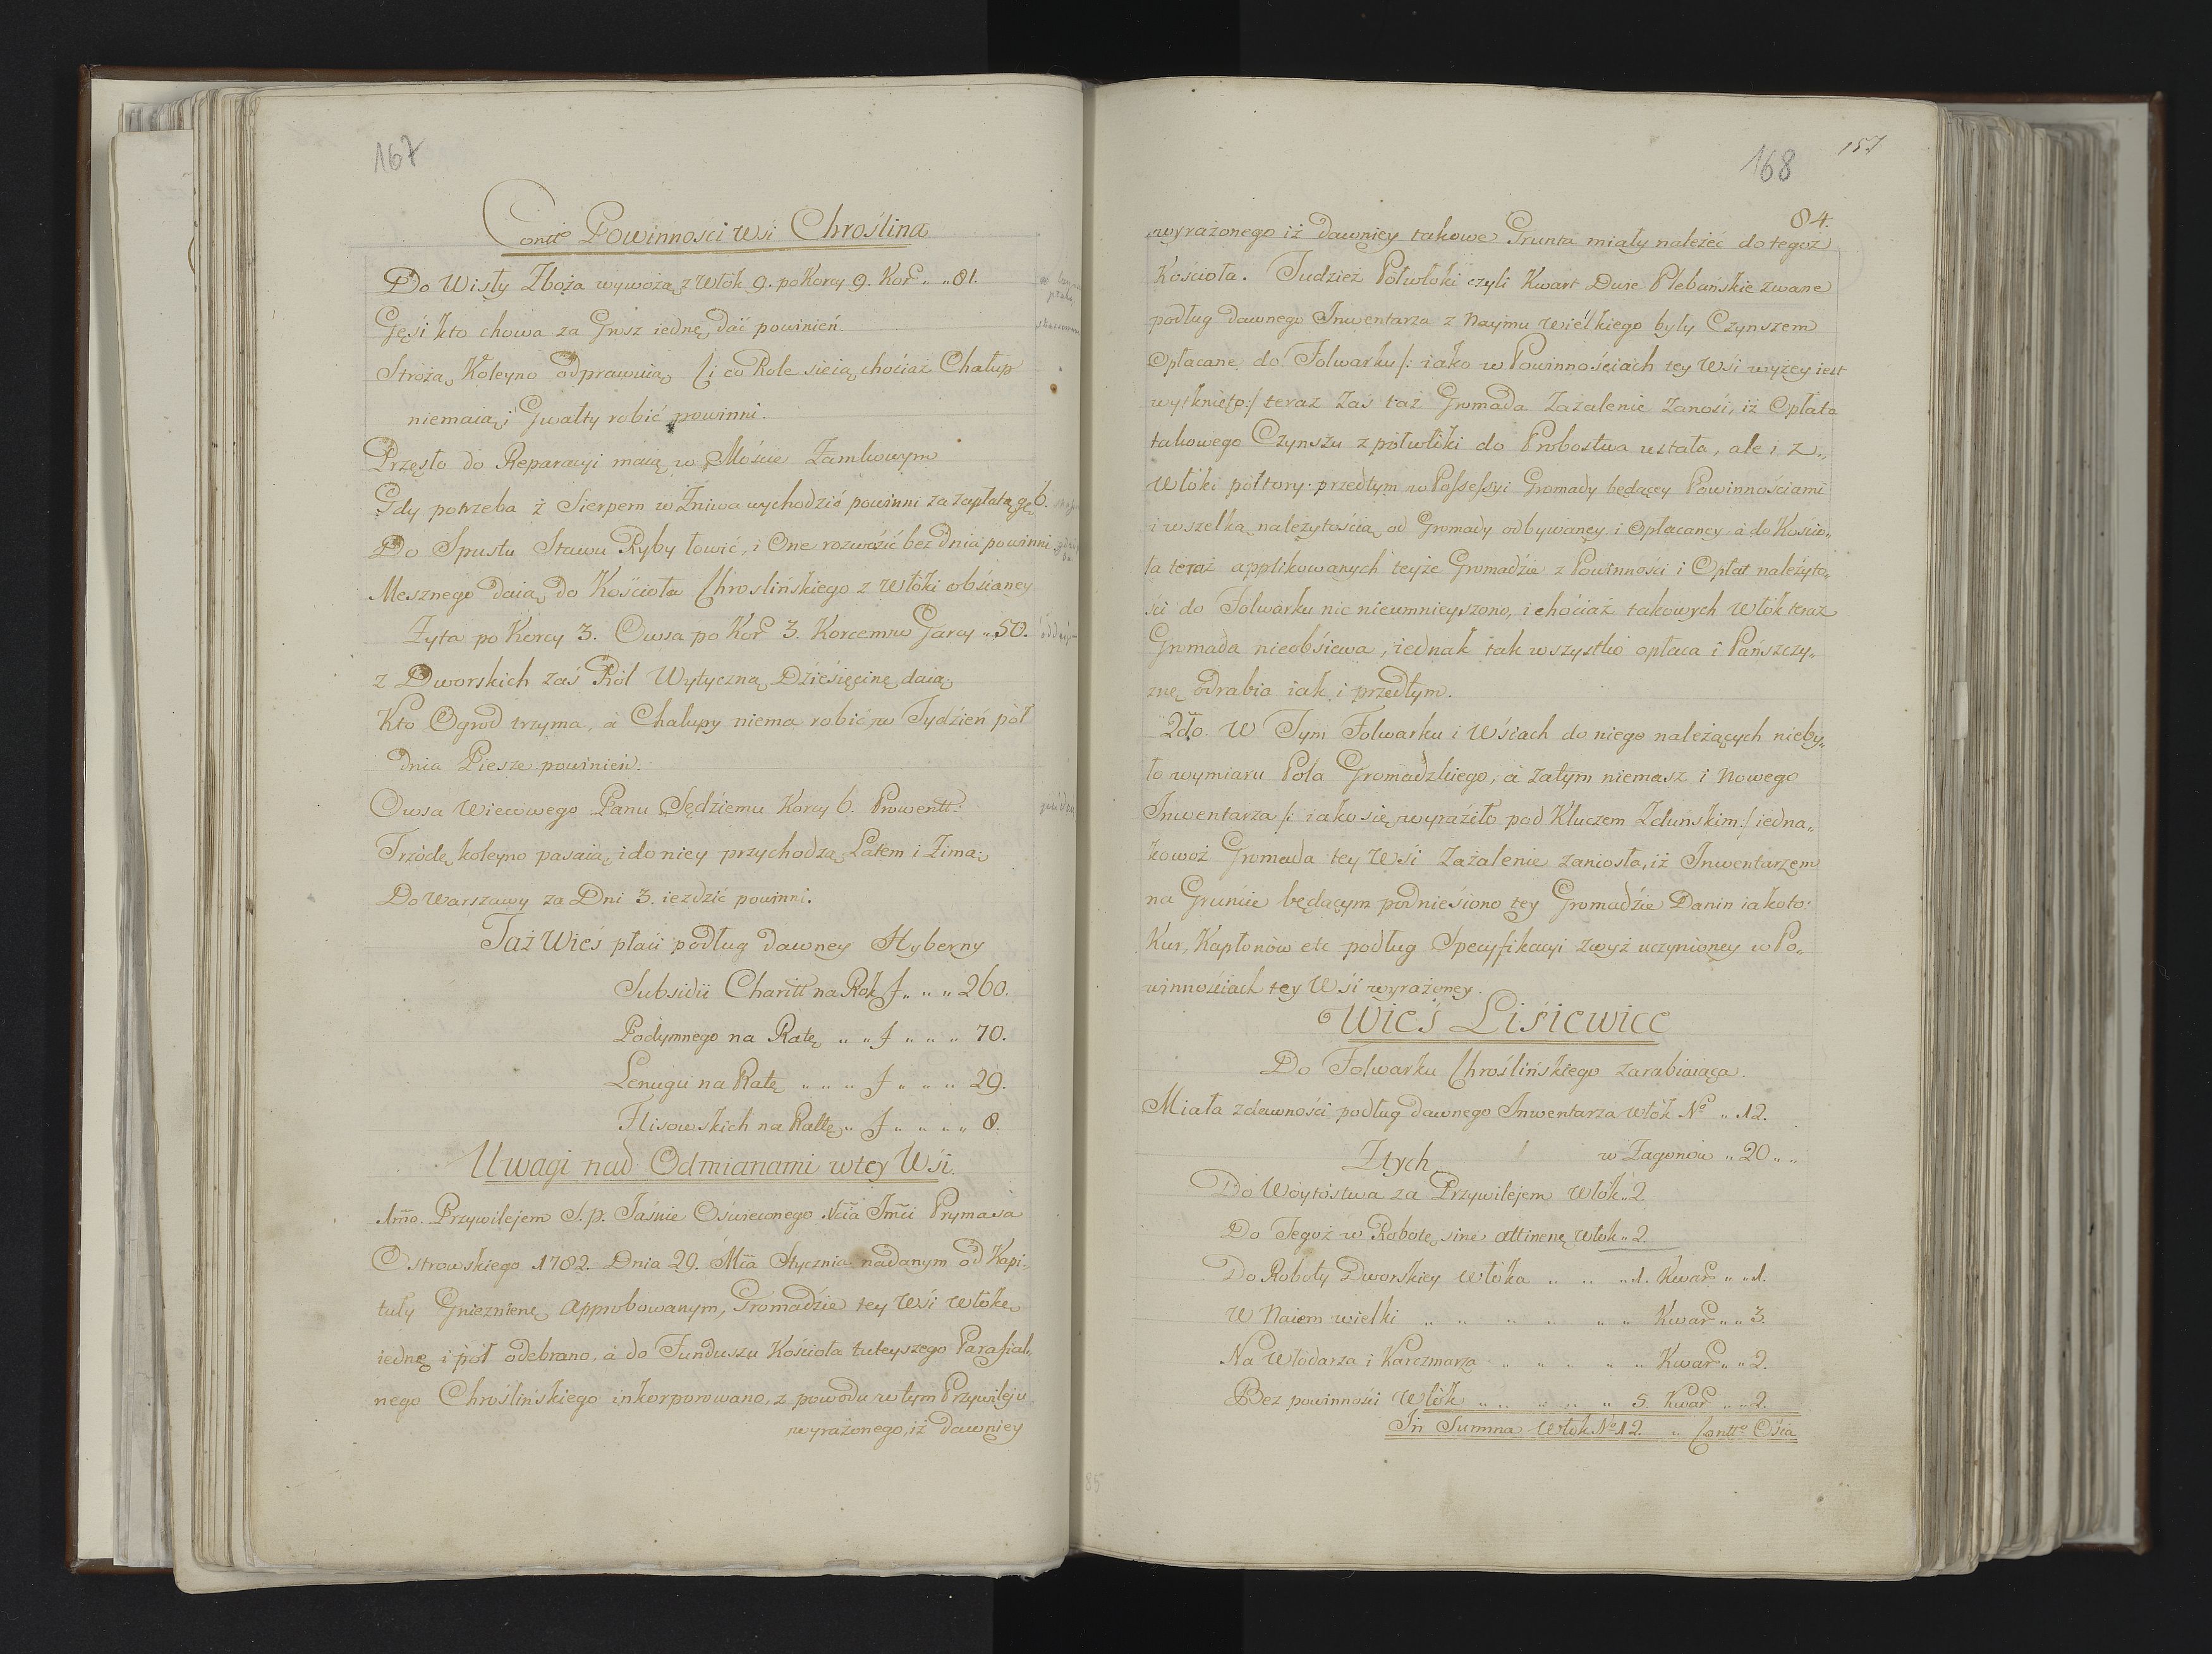 167
Contto Powinnosci Wsi Chroślina
Do Wisły Zboża wywożą z Włok 9. po Korcy 9. Korc „ „ 81.
Gęśi kto chowa za Grosz iednę dać powinień.
Strożą Koleyno odprawuią /i co Role sieią chociaż Chałup
niemaią i Gwałty robić powinni.
Przęsło do Reparacyi maią w Moście Zamkowym
Gdy potrzeba ż Sierpem w Żniwa wychodzić powinni za zapłatą gr. 6.
Do Spustu Stawu Ryby łowić, i One rozwozić bez dnia powinni
Mesznego daią do Kościoła Chroslińskiego z Włóki obsianey
Zyta po Korcy 3. Owsa po Korc 3. Korcem w Garcy „ 50.
z Dworskich zaś Ról Wytyczną Dźieśięcinę daią
Kto Ogrod trzyma, á Chałupy niema robić w Tydźień pół
dnia Piesze powinień.
Owsa Wiecowego Panu Sędźiemu Korcy 6. Prowentt:
Trzódę koleyno pasaią i do niey przychodzą Latem i Zimą
Do Warszawy za Dni 3. iezdzić powinni.
Taż Wieś płaći podług dawney Hyberny
Subsidii Charitt na Rok f „ „ „ 260.
Podymnego na Ratę „ „ f „ „ „ 70.
Lenugu na Ratę „ „ „ f „ „ „ 29.
Flisowskich na Rattę „ f „ „ „ „ 8.
Uwagi nad Odmianami w tey Wśi.
1mo. Przywilejem S. p. Jaśnie Oświeconego Xcia Jmći Prymasa
Ostrowskiego 1782. Dnia 29. Mca Stycznia nadanym od Kapi„
tuły Gnieznienę approbowanym, Gromadźie tey Wśi Włókę
iednę i pół odebrano, á do Funduszu Kościoła tuteyszego Parafial„
nego Chroślińskiego inkorporowano, z powodu w tym Przywileju
wyrażonego, iż dawniey
168
157
84.
wyrażonego iż dawniey takowe Grunta miały należeć do tegoż
Kościoła. Tudzież Półwłoki czyli Kwart Dwie Plebańskie zwane
podług dawnego Inwentarza z Naymu wielkiego były Czynszem
Opłacane do Folwarku /: iako w Powinnościach tey Wśi wyżey iest
wytknięto :/ teraz Zaś taż Gromada Zażalenie Zanosi, iż Opłata
takowego Czynszu z półwłóki do Probostwa ustała, ale i z„
Włóki półtory przedtym w Possessyi Gromady będącey Powinnościami
i wszelką należytością od Gromady odbywaney i Opłacaney á do Kościo„
ła teraz applikowanych teyże Gromadźie z Powinności i Opłat należyto„
ści do Folwarku nic nieumnieyszono, i choćiaż takowych Włók teraz
Gromada nieobśiewa, iednak tak wszystko opłaca i Pańszczy„
znę odrabia iak i przedtym.
2do. W Tym Folwarku i Wśiach do niego należących nieby„
ło wymiaru Pola Gromadzkiego, á zatym niemasz i Nowego
Inwentarza /: iako się wyraźiło pod Kluczem Zdunskim :/ iedna„
kowoż Gromada tey Wśi Zażalenie zaniosła, iż Inwentarzem
na Grunćie będącym podnieśiono tey Gromadźie Danin iakoto:
Kur, Kapłonów etc podług Specyfikacyi zwyż uczynioney w Po„
winnościach tey Wśi wyrażoney.
Wieś Liśiewice
Do Folwarku Chroślińskiego zarabiaiąca.
Miała zdawności podług dawnego Inwentarza Włók No „ 12.
w Zagonów „ 20 „ „
Ztych
Do Woytostwa za Przywilejem Włók „ 2.
Do Tegoż w Robotę sine attinenę Włok „ 2.
Do Roboty Dworskiey Włóka „ „ „ 1. Kwar „ „ 1.
W Naiem wielki „ „ „ „ „ „ Kwar „ „ 3.
Na Włodarza i Karczmarza „ „ „ „ „ Kwar „ „ 2.
Bez powinności Włók „ „ „ „ „ 5. Kwar „ „ 2.
In Summa Włok No 12. „ Contto Ośia
85